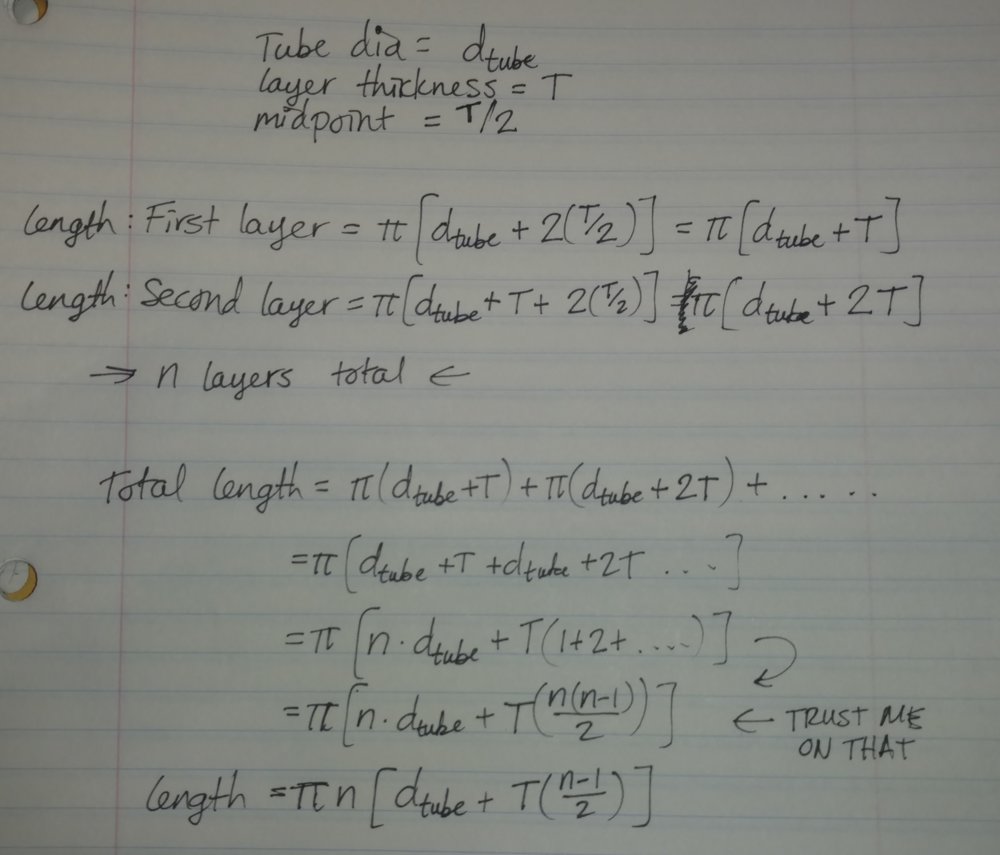 Tube dia = d_tube
layer thickness = T
midpoint = T/2
length: First layer = π[d_tube + 2(T/2)] = π[d_tube + T]
length: Second layer = π[d_tube + T + 2(T/2)] = π[d_tube + 2T]
→ n layers total ←
Total length = π(d_tube + T) + π(d_tube + 2T) + .....
= π[d_tube + T + d_tube + 2T ...]
= π[n · d_tube + T(1+2+....)]
= π[n · d_tube + T(n(n-1)/2)] ← TRUST ME
ON THAT
length = πn[d_tube + T(n-1/2)]